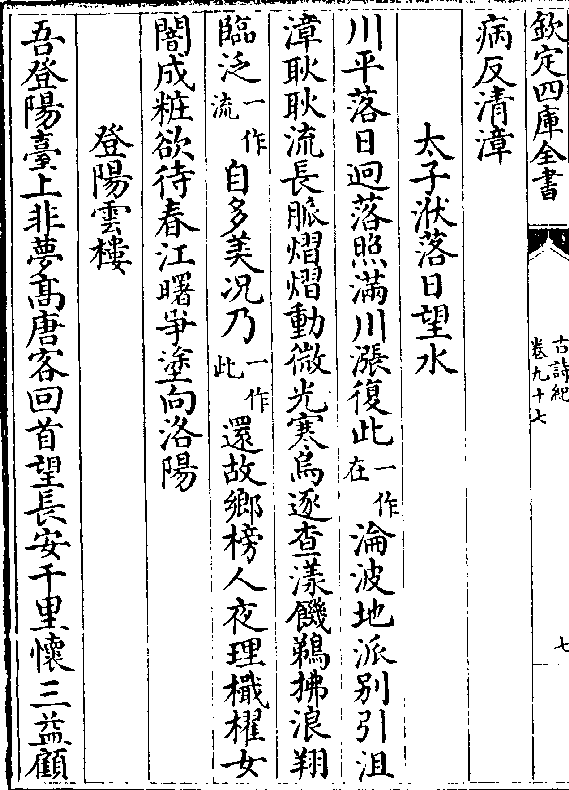 欽定四庫全書
古詩紀
卷九十七
七
病反清漳
太子洑落日望水
川平落日迥落照滿川漲復此一作在淪波地派别引沮
漳耿耿流長脈熠熠動微光寒烏逐查漾饑鵜拂浪翔
臨泛一作流自多美况乃一作此還故鄉榜人夜理檝櫂女
闇成粧欲待春江曙爭塗向洛陽
登陽雲樓
吾登陽臺上非夢高唐客回首望長安千里懷三益顧